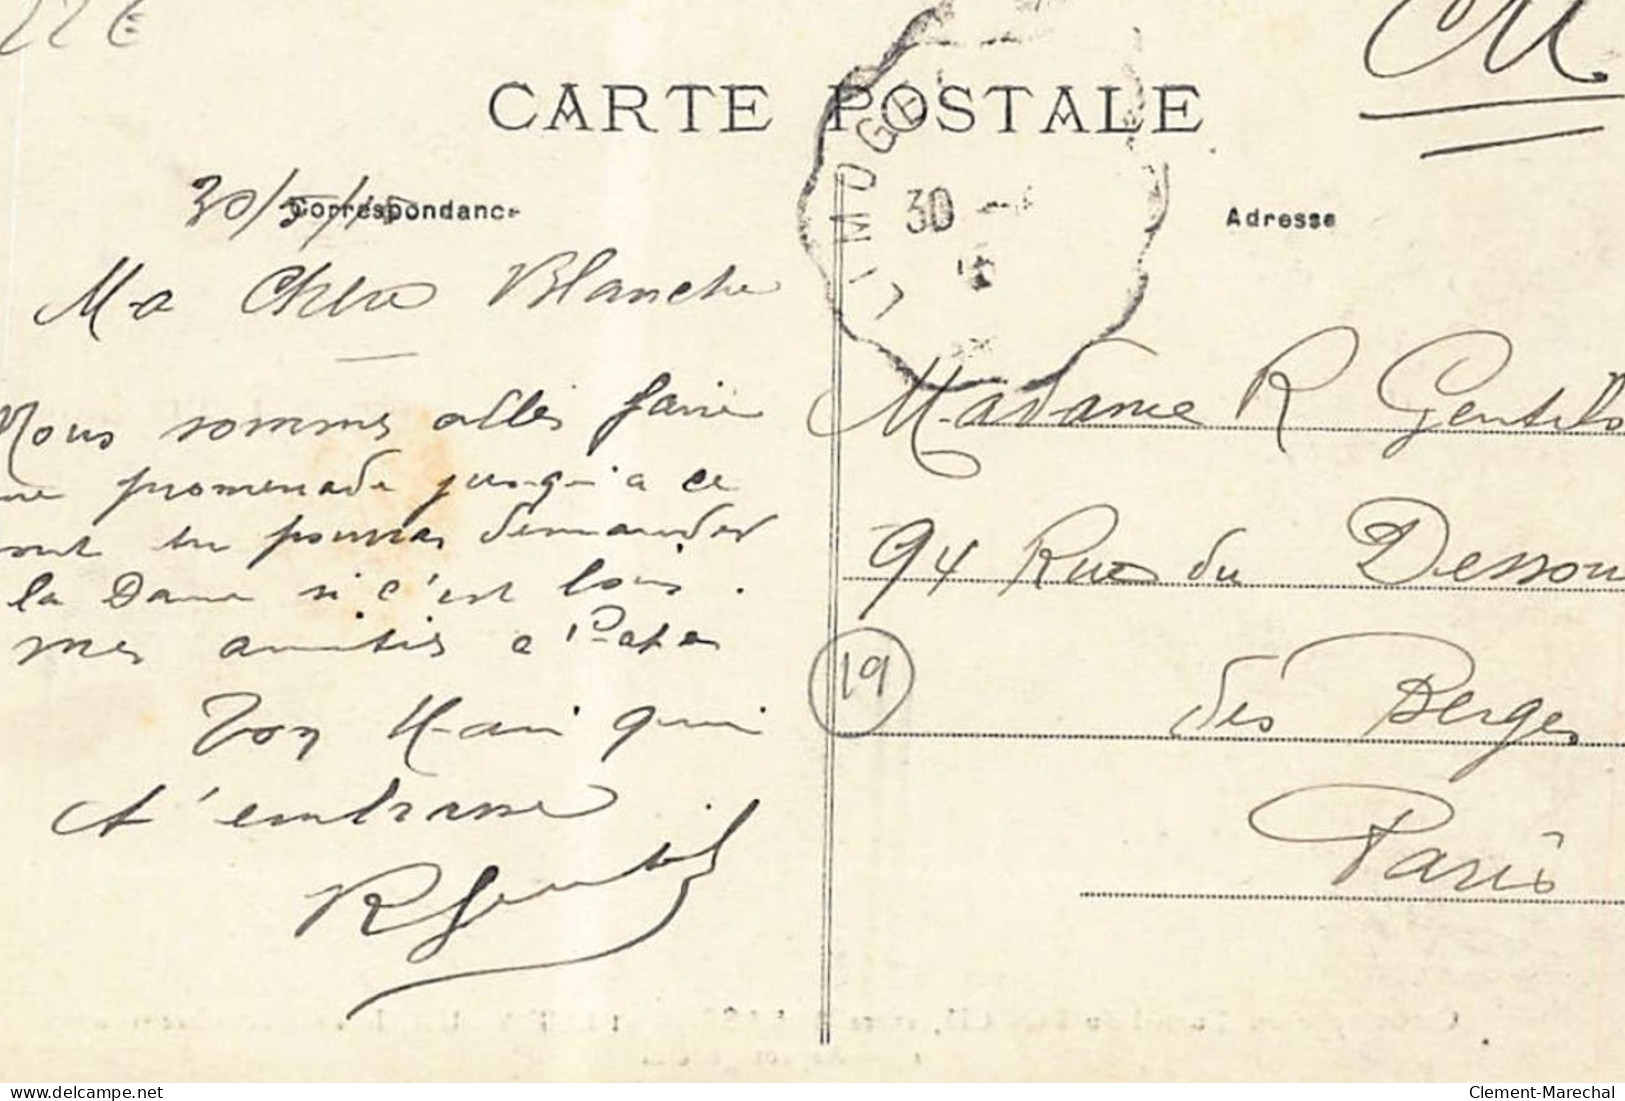 22€
CM
CARTE POSTALE
LIMOGE
30
30/5/15
Correspondance
Adresse
Ma Chère Blanche
Nous sommes allés faire
promenade jusqu'a ce
tu pourras demander
la Dame si c'est loin.
mes amitiés a Papa
Ton Mari qui
t'embrasse
R Gentil
Madame R Gentils
94 Rue du Dessou
des Berges
19
Paris
delcampe.net
Clement-Marechal